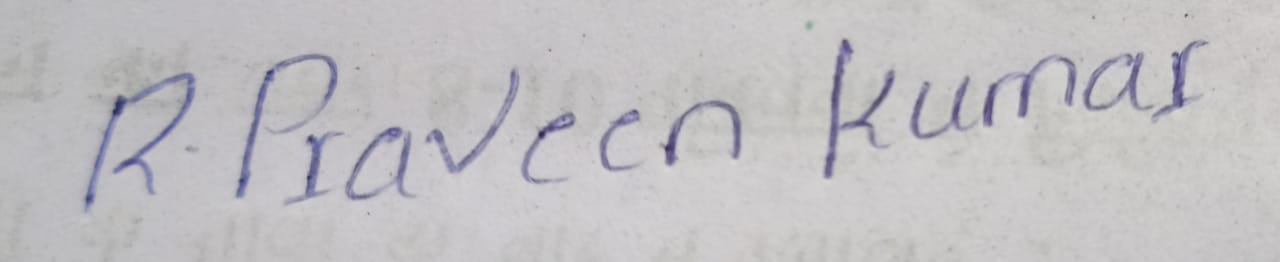 R. Praveen Kumar